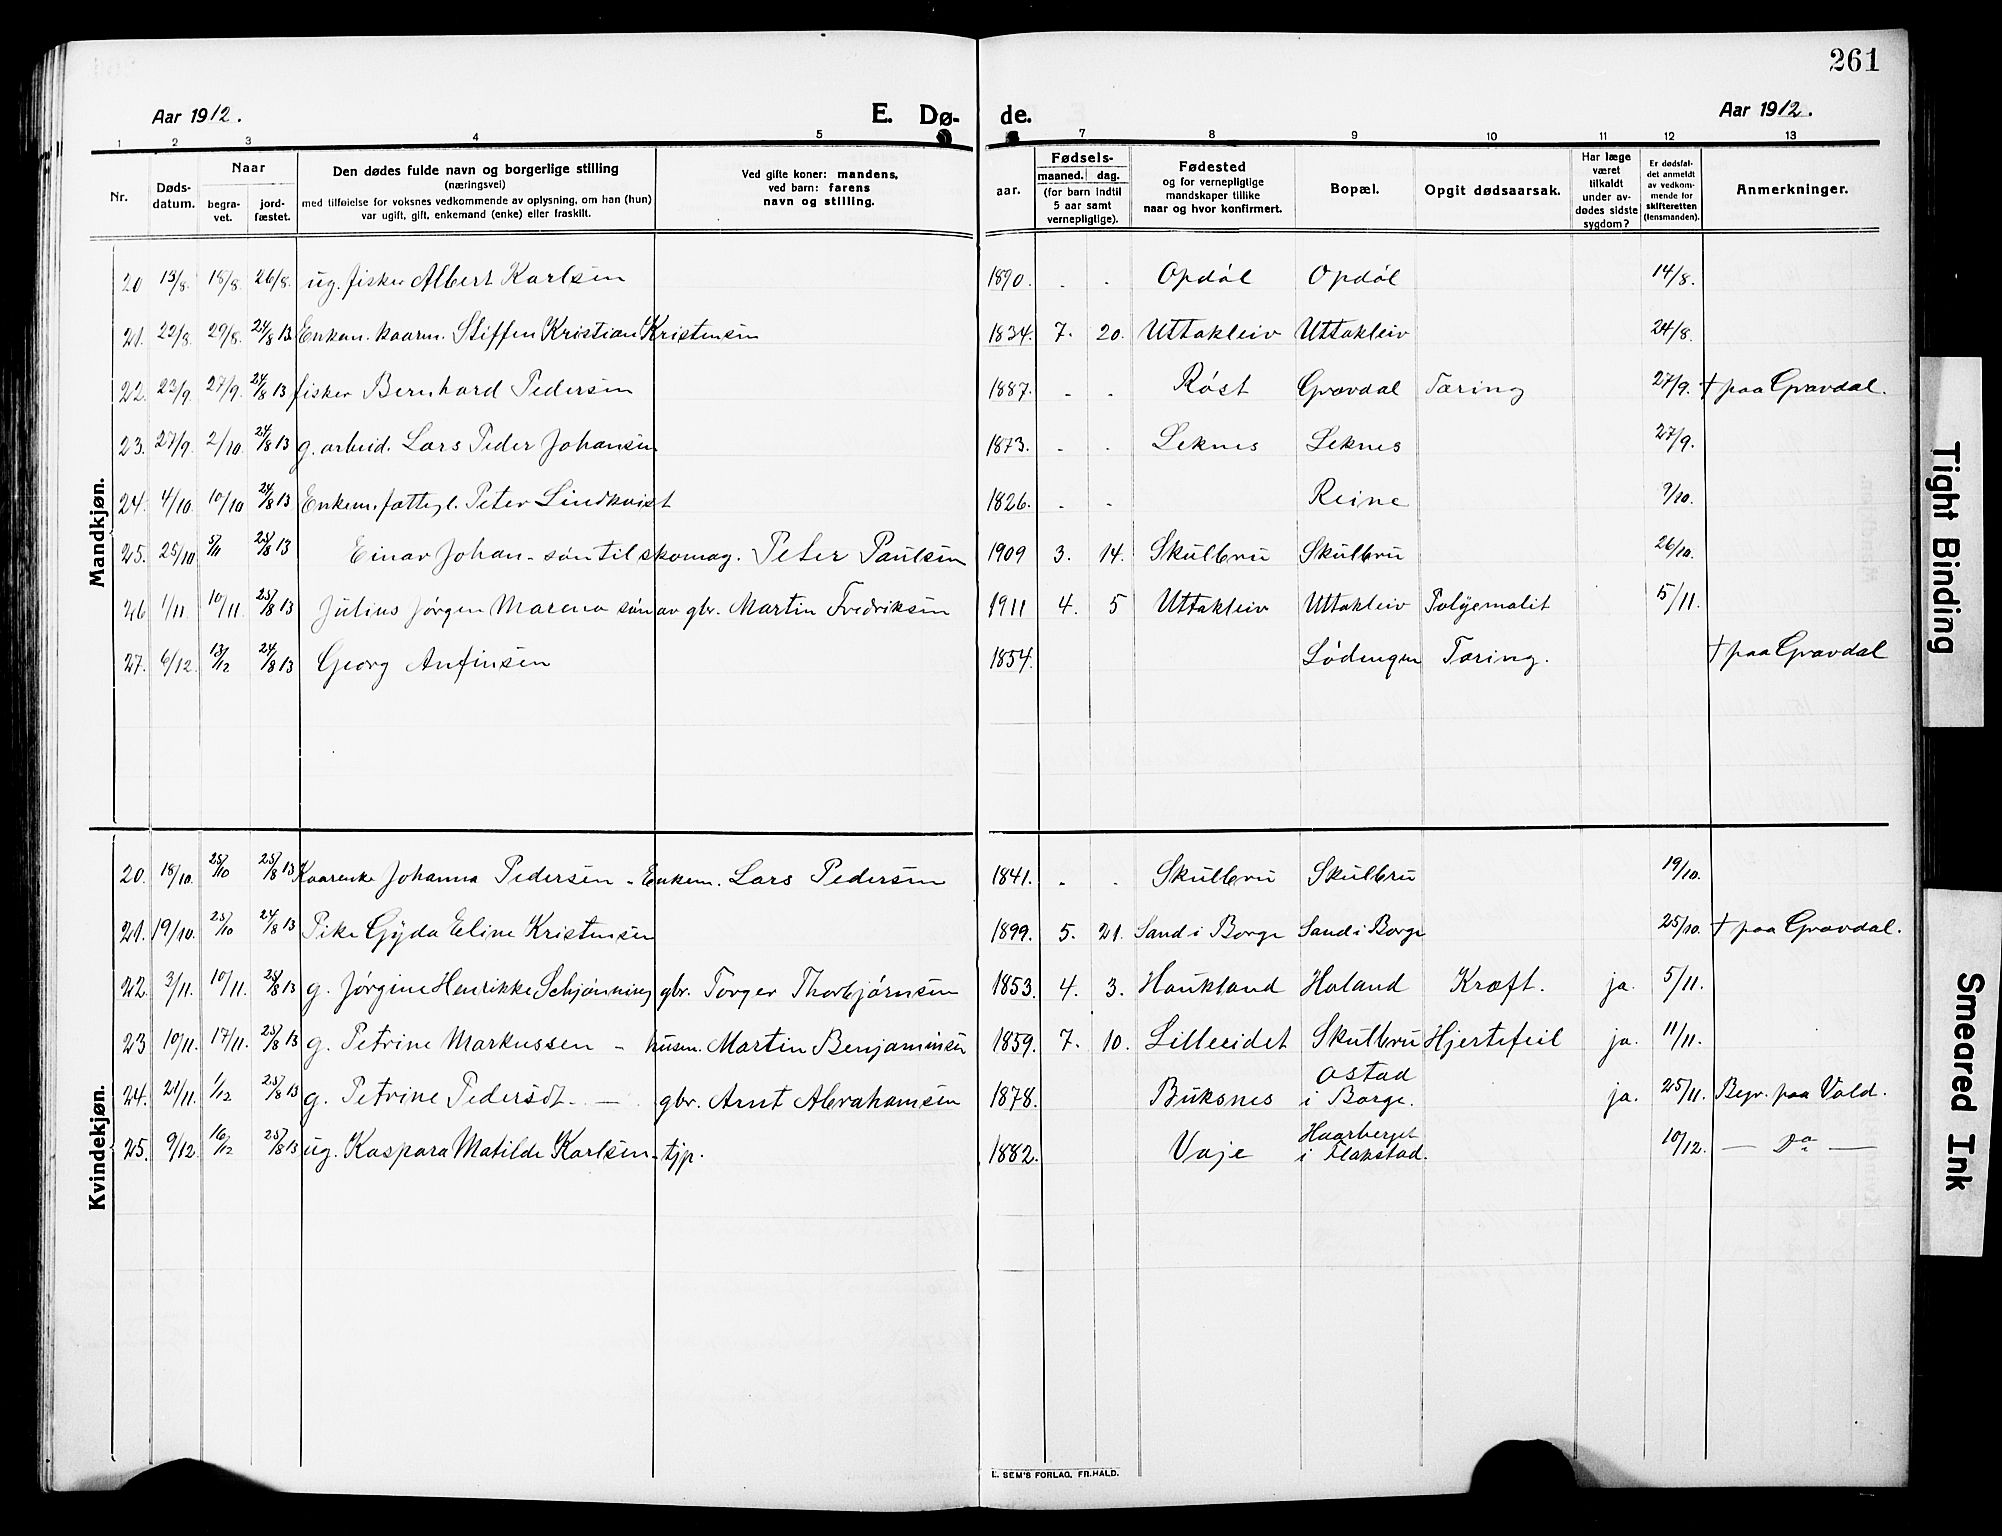 261
Aar 1912. E. Dø- de. Aar 1912.
1 2 3 4 5 7 8 9 10 11 12 13
Nr. Døds-datum. Naar begra-vet. jord-fæstet. Den dødes fulde navn og borgerlige stilling (næringsvei) med tilføielse for voksnes vedkommende av oplysning, om han (hun) var ugift, gift, enkemand (enke) eller fraskilt. Ved gifte koner: mandens, ved barn: farens navn og stilling. aar. Fødsels- maaned. dag. (for barn indtil 5 aar samt vernepligtige). Fødested og for vernepligtige mandskaper tillike naar og hvor konfirmert. Bopæl. Opgit dødsaarsak. Har læge været tilkaldt under av-dødes sidste sygdom? Er dødsfal-det anmeldt av vedkom-mende for skifteretten (lensmanden). Anmerkninger.
Mandkjøn.
20 13/8 18/8 26/8. ug. fisker Albert Karlsen 1890. . . Opdøl Opdøl 14/8.
21. 22/8 29/8. 24/8 13. Enkem. kaarm. Steffen Kristian Kristensen 1834. 7. 20. Uttakleiv Uttakleiv 24/8.
22. 23/9 27/9. 24/8 13 fisker Bernhard Pedersen 1887. - . Røst Gravdal Tæring 27/9. † paa Gravdal.
23. 27/9 2/10. 24/8 13 g. arbeid. Lars Peder Johansen 1873. . . Leknes Leknes 27/9.
24. 4/10. 10/10 24/8 13 Enkem. fattigl. Peter Lindkvist 1826. . . Reine 9/10.
25. 25/10 5/11 25/8 13 Einar Johan - søn til skomag. Peter Paulsen 1909 3. 14. Skulbru Skulbru 26/10.
26 1/11. 10/11. 25/8 13 Julius Jørgen Mareno søn av gbr. Martin Fredriksen 1911 4. 5 Uttakleiv Uttakleiv Polyemolit 5/11.
27. 6/12. 13/12 24/8 13 Georg Anfinsen 1854. Lødingen Tæring. † paa Gravdal
Kvindekjøn.
20. 18/10. 25/10 25/8 13 Kaarenke Johanna Pedersen - Enkem. Lars Pedersen 1841. . . Skulbru Skulbru 19/10.
21. 19/10. 25/10 24/8 13 Pike Gyda Eline Kristensen 1899. 5. 21. Sand i Borge Sand i Borge 25/10. † paa Gravdal.
22. 3/11. 10/11. 25/8 13 g. Jørgine Henrikke Schjønning gbr. Torger Thorbjørnsen 1853. 4. 3. Haukland Holand Kræft. ja. 5/11.
23 10/11. 17/11. 25/8 13 g. Petrine Markussen - husm. Martin Benjaminsen 1859. 7. 10. Lilleeidet Skulbru Hjertefeil ja. 11/11.
24. 21/11. 1/12 25/8 13 g. Petrine Pedersdt. - gbr. Arnt Abrahamsen 1878. Buksnes Ostad i Borge. ja. 25/11. Begr. paa Vold.
25. 9/12. 16/12 25/8 13 ug. Kaspara Matilde Karlsen - tjp. 1882. Vaje Haarberget i Flakstad. 10/12. — Do —
E. SEM'S FORLAG, FR.HALD.
Tight Binding
Smeared Ink